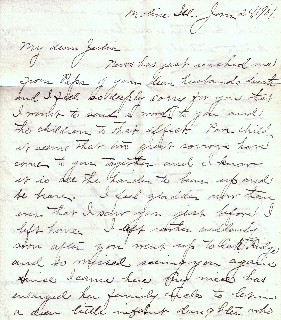 Moline, Ill. Jan 24/1901
My dear
News has just reached me
from Papa of your dear husband's death
and I feel so deeply sorry for you that
I want to send a word to you and
the children to that effect. Poor child,
it seems that great sorrows have
come to you together and I know
it is the harder to bear up and
be brave. I feel gladder now than
ever that I saw you just before I
left home. I left rather suddenly
soon after you went up to
and so missed seeing you again.
Since I came here my niece has
enlarged her family circle to let in
a dear little infant daughter who